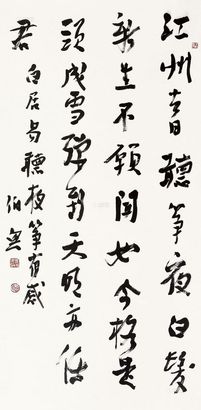 江州去日聽筝夜白髮
新生不願聞如今格是
頭成雪彈到天明亦任
君
白居易聽夜筝有感